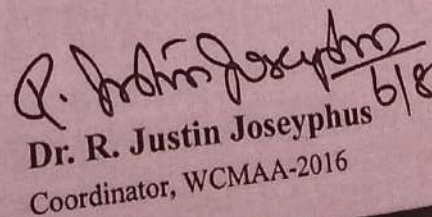 R. Justin Joseyphus
6/8
Dr. R. Justin Joseyphus
Coordinator, WCMAA-2016